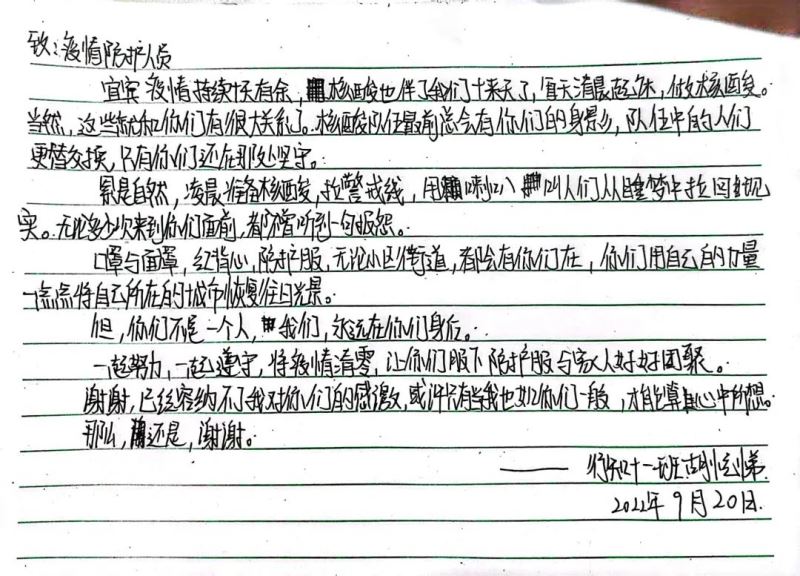 致：疫情防护人员
宜宾疫情持续十天有余，核酸也伴了我们十来天了，每天清晨起床，做核酸。
当然，这些就和你们有很大关系了。核酸队伍最前总会有你们的身影，队伍中的人们
更替交换，只有你们还在那处坚守。
累是自然，凌晨准备核酸，拉警戒线，用喇叭叫人们从睡梦中拉回现
实。无论多少次来到你们面前，都不曾听到一句报怨。
口罩与面罩，红背心，防护服，无论小区街道，都会有你们在，你们用自己的力量
一点点将自己所在的城市恢复往日光景。
但，你们不是一个人，我们，永远在你们身后。
一起努力，一起遵守，将疫情清零，让你们脱下防护服与家人好好团聚。
谢谢，已经容纳不了我对你们的感激，或许只有当我也如你们一般，才能算心中所想。
那么，还是，谢谢。
—— 行知十一班胡
2022年9月20日.